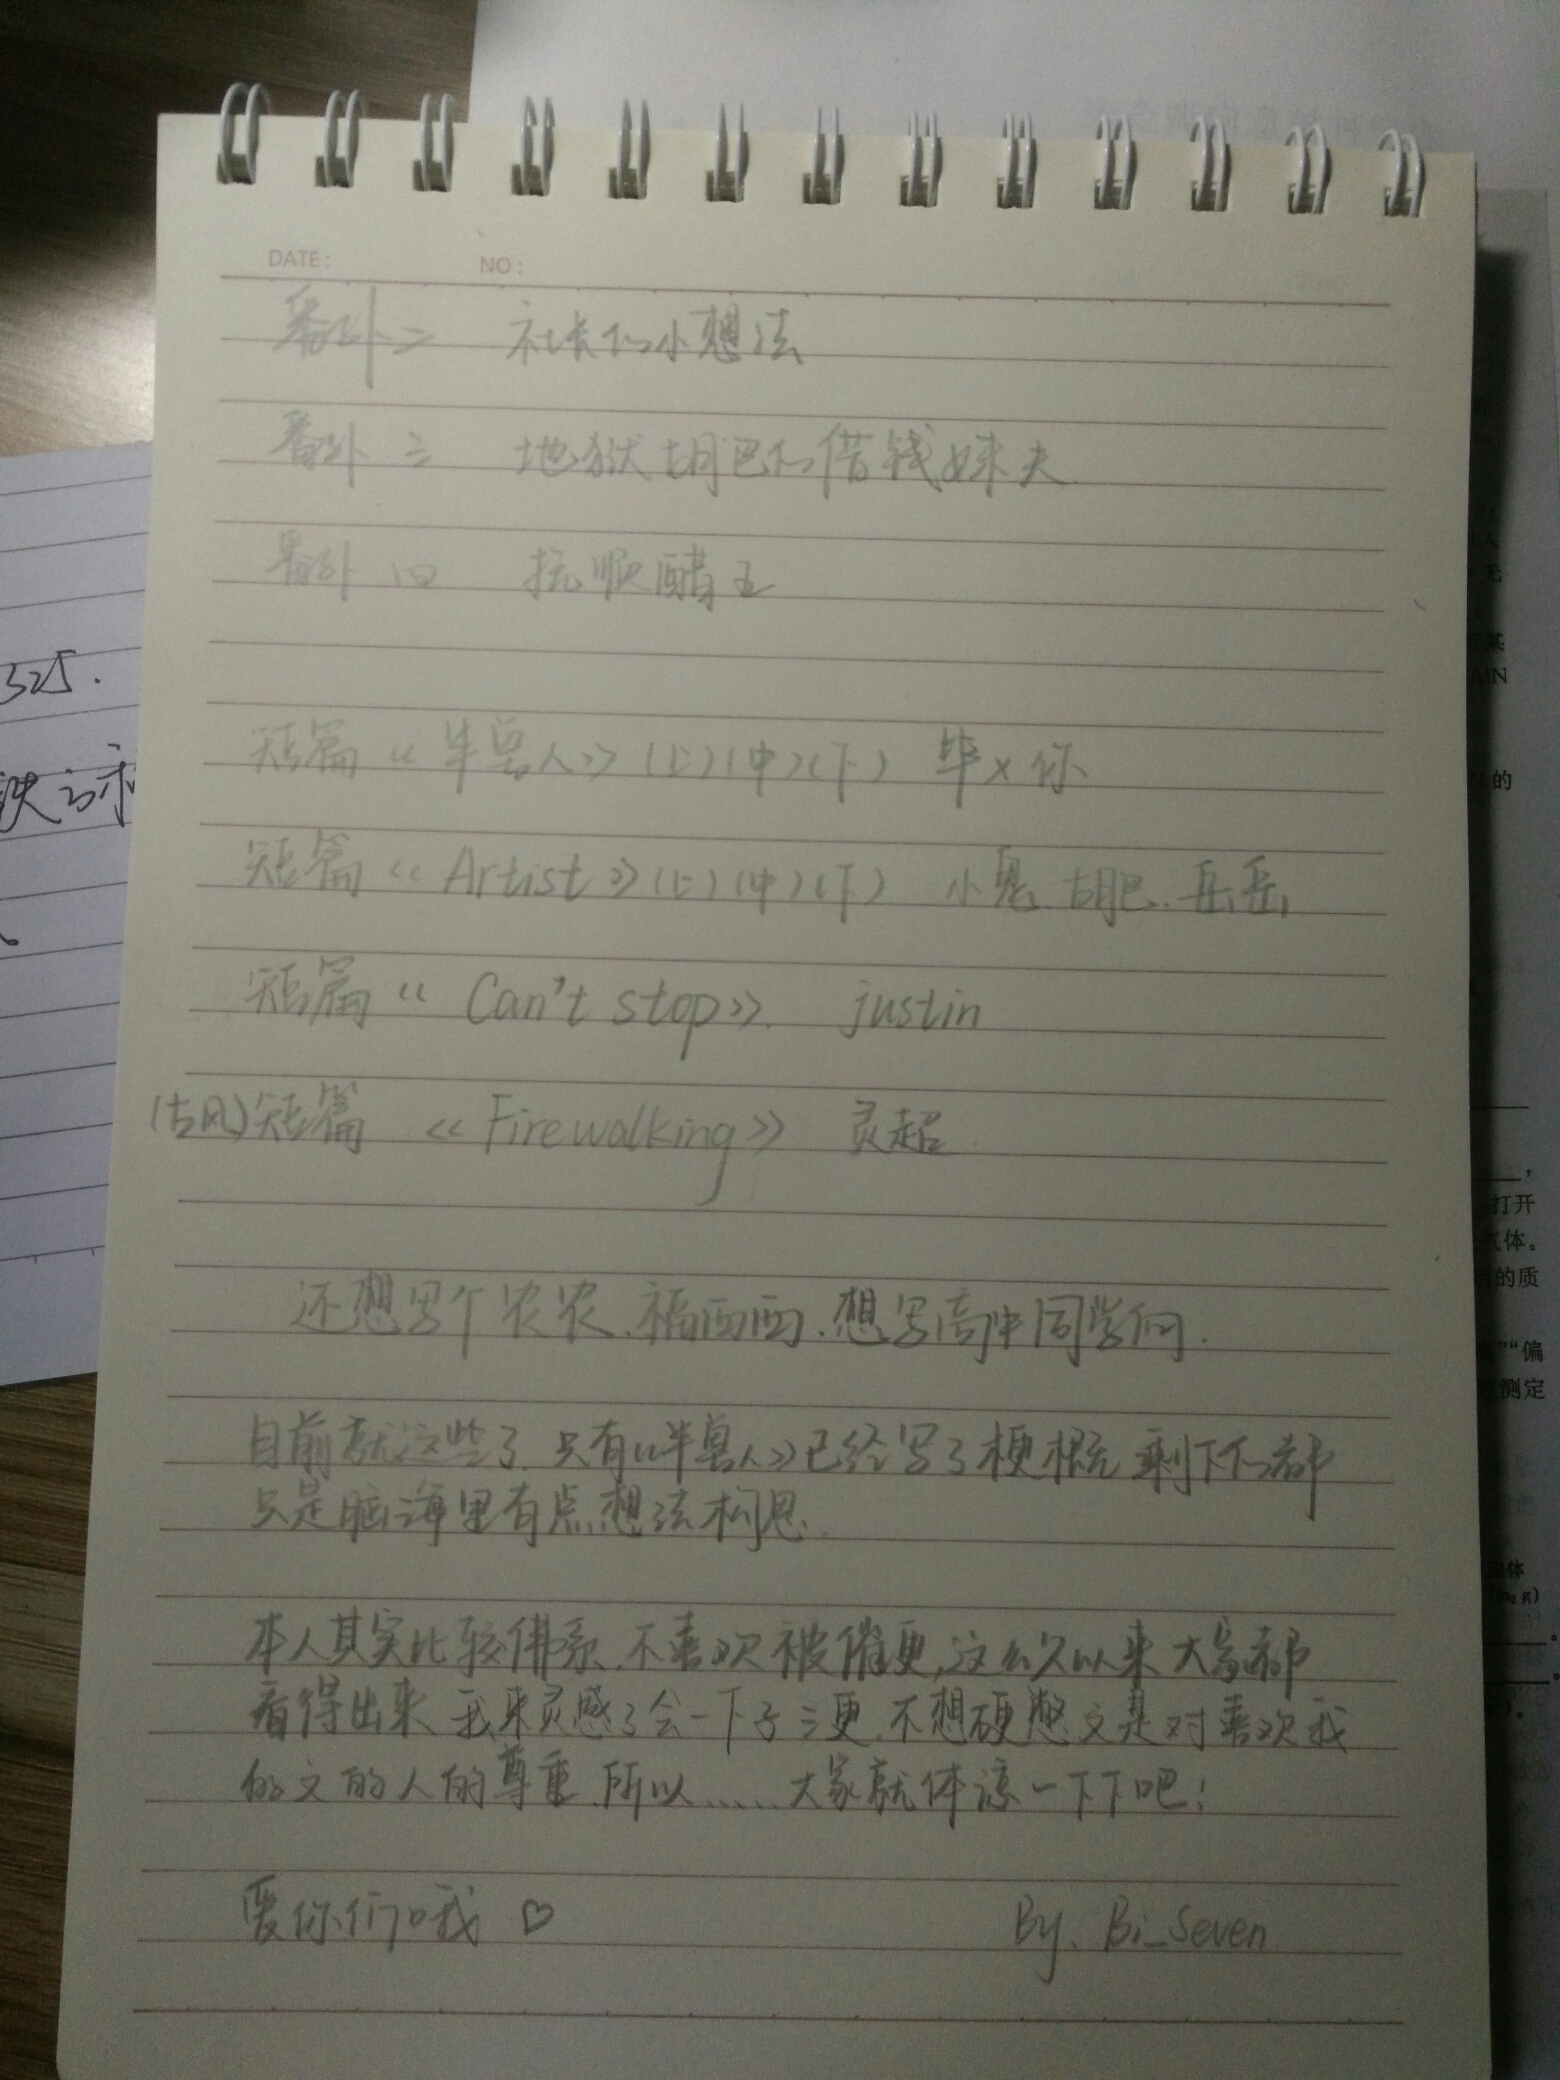 DATE: NO:
番外二 社长的小想法
番外三 地狱胡巴的借钱妹夫
番外四 抚顺醋王
短篇《半兽人》(上)(中)(下) 毕×你
短篇《Artist》(上)(中)(下) 小鬼、胡巴、岳岳
短篇《Can't stop》. justin
(古风)短篇 《Firewalking》 灵超.
还想写个农农、福西西、想写高中同学们.
目前就这些了.只有《半兽人》已经写了梗概 剩下的都
只是脑海里有点想法构思.
本人其实比较佛系.不喜欢被催更,这么久以来大家都
看得出来 我来灵感了会一下子三更.不想硬憋文是对喜欢我
的文的人的尊重.所以......大家就体谅一下下吧!
爱你们哦 ♡ By. Bi_Seven
325.
人
无
某
AIN
的
打开
气体。
的质
”“偏
测定